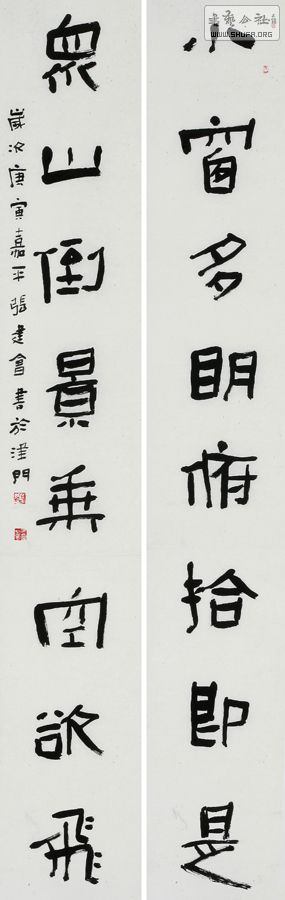 小窗多明俯拾即是
眾山倒景乘空欲飛
歲次庚寅嘉平張建會書於津門
書藝公社
WWW.SHUFA.ORG